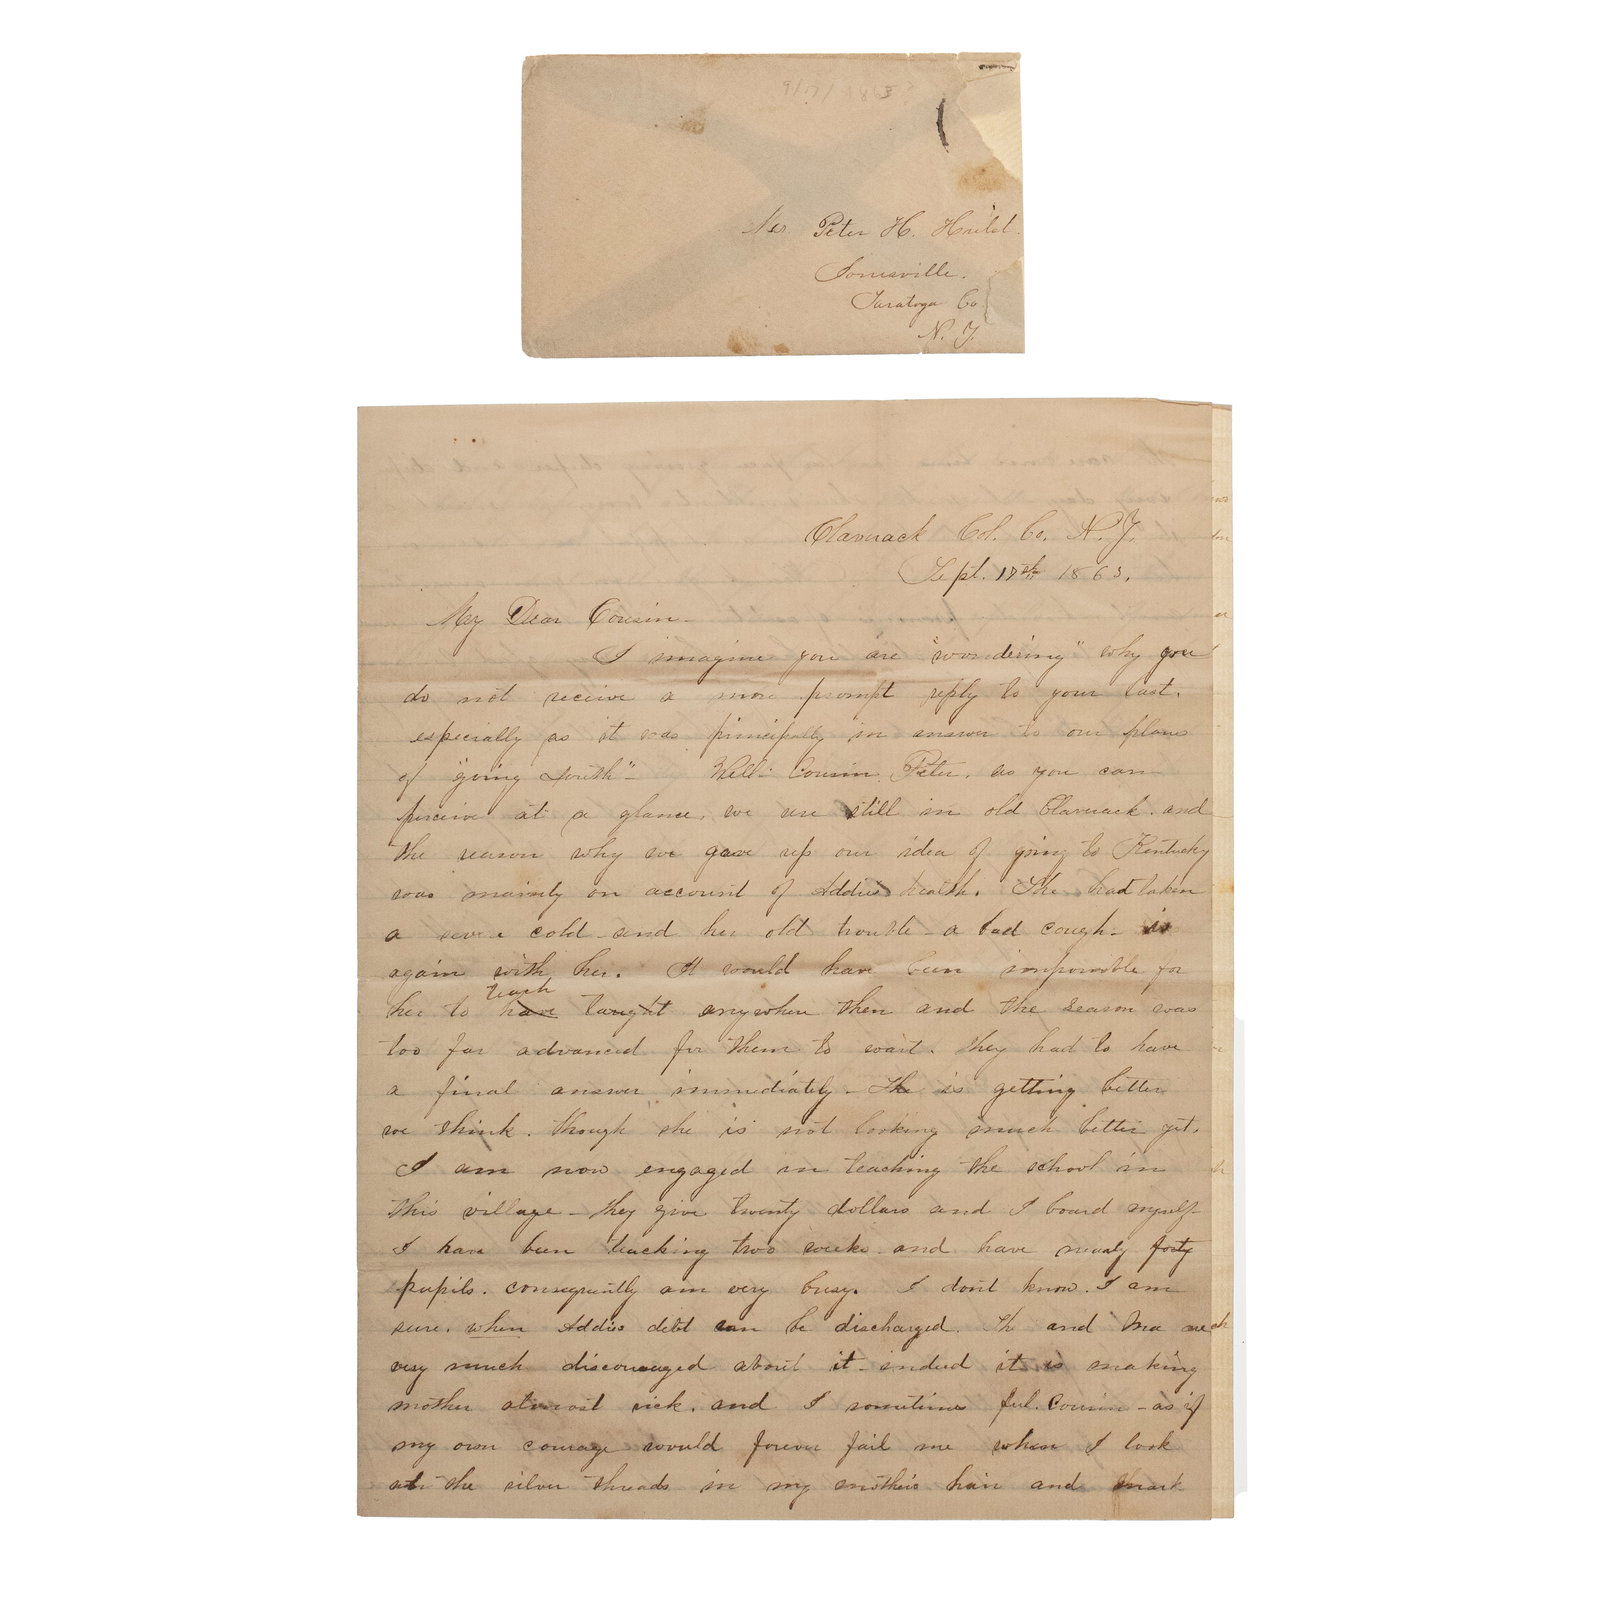 Peter H.
Jonesville.
Saratoga Co
N. Y.
Claverack Col. Co. N. Y.
Sept. 17th 1863.
My Dear Cousin-
I imagine you are "wondering" why you
do not receive a more prompt reply to your last.
especially as it was principally in answer to our plans
of "going South"- Well- Cousin Peter, as you can
perceive at a glance, we are still in old Claverack. and
the reason why we gave up our idea of going to Kentucky
was mainly on account of Addies health. She had taken
a severe cold - and her old trouble - a bad cough - is
again with her. It would have been impossible for
her to have taught teach anywhere then and the season was
too far advanced for them to wait. they had to have
a final answer immediately - She is getting better
we think. though she is not looking much better yet.
I am now engaged in teaching the school in
this village - they give twenty dollars and I board myself-
I have been teaching two weeks and have nearly forty
pupils. consequently am very busy. I dont know. I am
sure. when Addies debt can be discharged. She and Ma are
very much discouraged about it - indeed it is making
mother almost sick. and I sometimes feel. Cousin - as if
my own courage would forever fail me when I look
at the silver threads in my mother's hair and mark